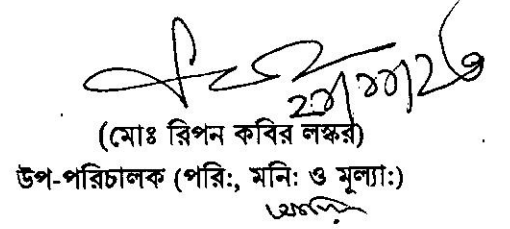 (মোঃ রিপন কবির লস্কর)
উপ-পরিচালক (পরি:, মনি: ও মূল্যা:)